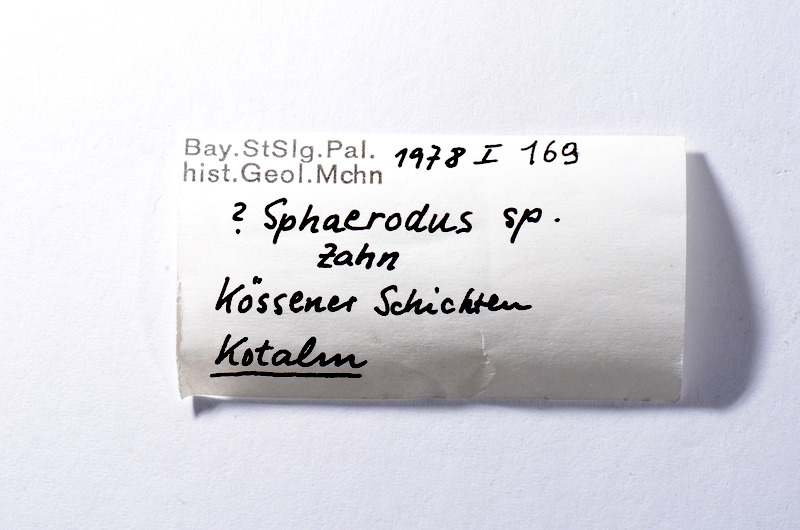 Bay.StSlg.Pal. 1978 I 169
hist.Geol.Mchn
? Sphaerodus sp.
Zahn
Kössener Schichten
Kotalm